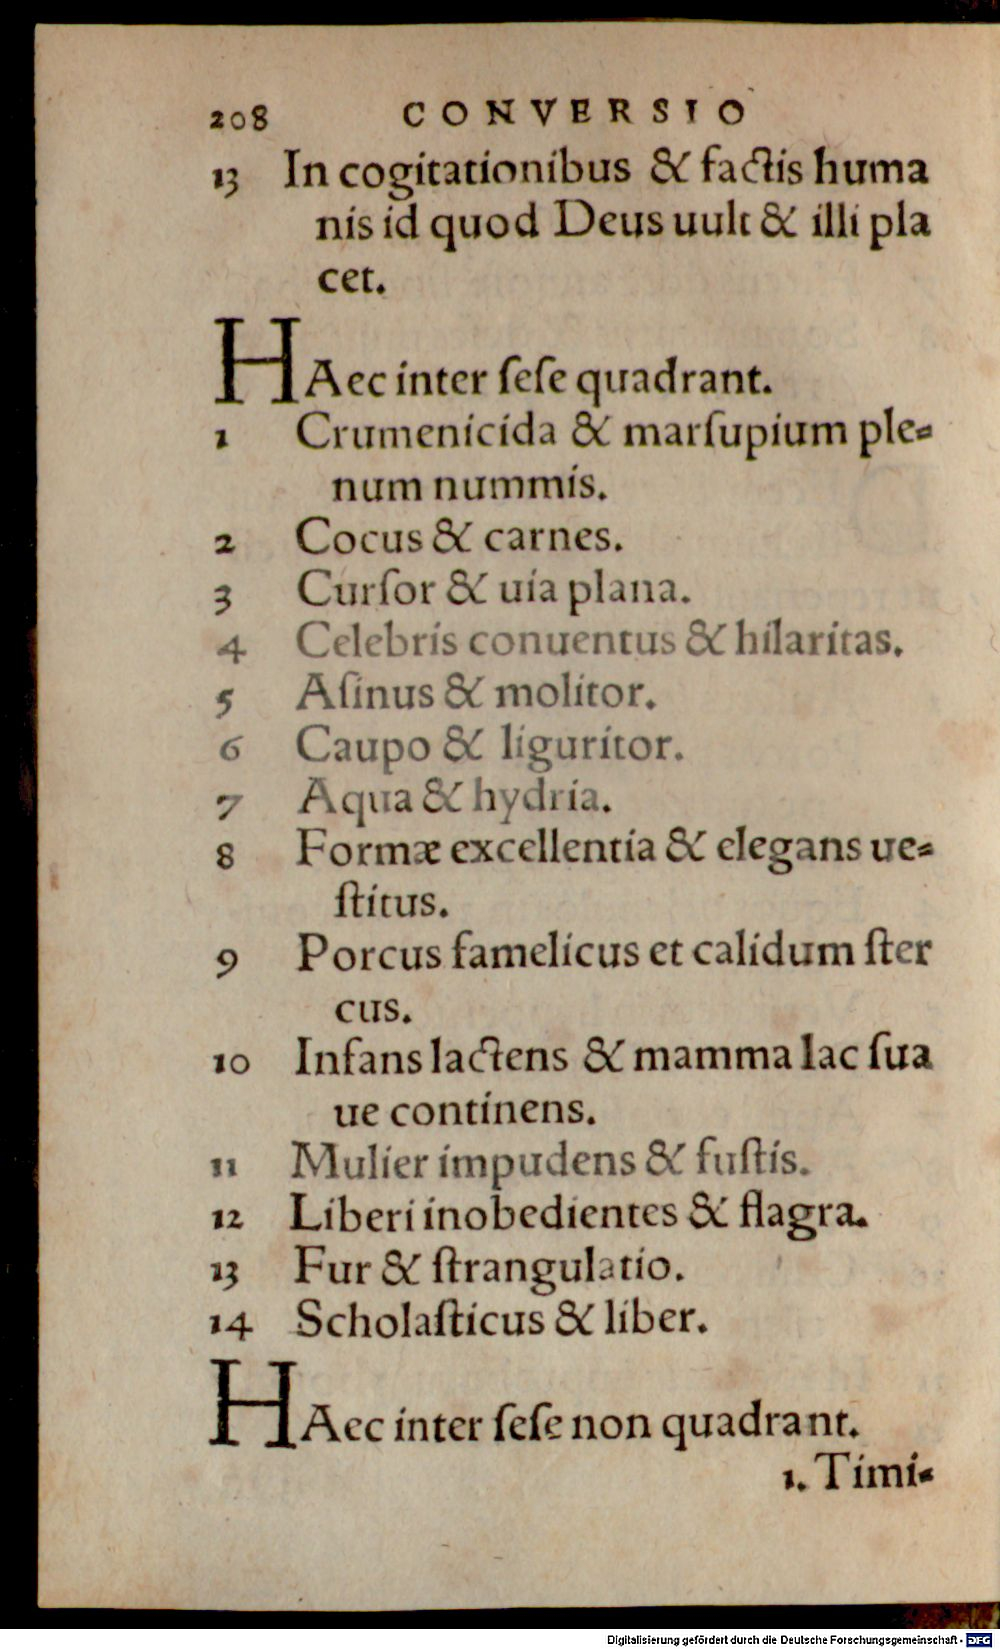 208 CONVERSIO
13 In cogitationibus & factis huma
nis id quod Deus uult & illi pla
cet.
HAec inter ſeſe quadrant.
1 Crumenicida & marſupium ple-
num nummis.
2 Cocus & carnes.
3 Curſor & uia plana.
4 Celebris conuentus & hilaritas.
5 Aſinus & molitor.
6 Caupo & liguritor.
7 Aqua & hydria.
8 Formæ excellentia & elegans ue-
ſtitus.
9 Porcus famelicus et calidum ſter
cus.
10 Infans lactens & mamma lac ſua
ue continens.
11 Mulier impudens & fuſtis.
12 Liberi inobedientes & flagra.
13 Fur & ſtrangulatio.
14 Scholaſticus & liber.
HAec inter ſeſe non quadrant.
1. Timi-
Digitalisierung gefördert durch die Deutsche Forschungsgemeinschaft - DFG